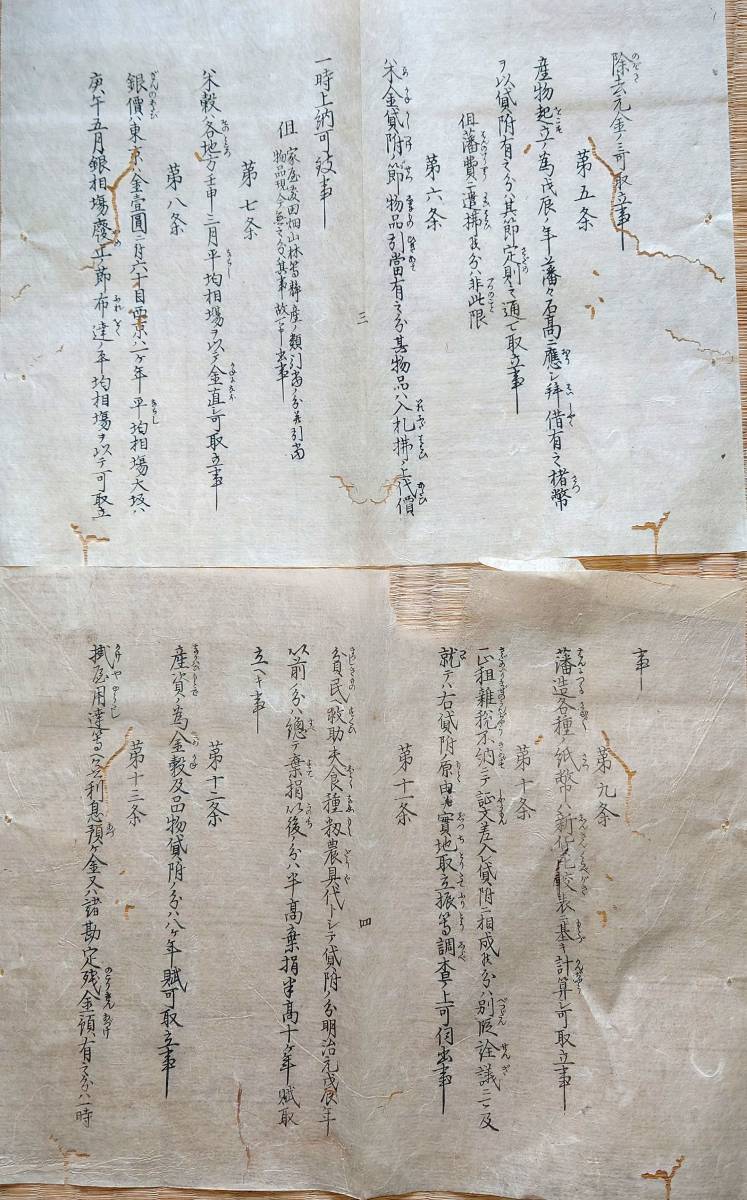 除去元金ノミ可取立事
第五条
産物起立ノ為戊辰ノ年藩々石高ニ應シ拜借有之楮幣
ヲ以貸附有之分ハ其節定則之通取立事
但藩費ニ遣拂候分ハ非此限
第六条
米金貸附ノ節物品引當有之分其物品ハ入札拂ノ上代價
一時上納可致事
但家屋敷田畑山林等
物品現今無之分
第七条
米穀ハ各地方壬申三月平均相場ヲ以テ金直シ可取立事
第八条
銀價東京ハ金壹圓ニ付六十目西京ハ一ケ年平均相場大坂ハ
庚午五月銀相場廢止ノ節布達ノ平均相場ヲ以テ可取立
三
事
第九条
藩造各種ノ紙幣ハ新貨比較表ニ基キ計算シ可取立事
第十条
正租雜税不納ニテ証文差入レ貸附ニ相成候分ハ別段詮議ニ不及
就テハ右貸附原由實地取立振等調査ノ上可伺出事
第十一条
貧民救助夫食種籾農具代トシテ貸附ノ分明治元戊辰年
以前ノ分ハ總テ棄捐以後ノ分ハ半高棄捐半高十ケ年賦取
立ヘキ事
第十二条
産資ノ為金穀及品物貸附ノ分ハ八ケ年賦可取立事
第十三条
掛屋用達等ヘ無利息預ケ金又ハ諸勘定残金預ケ有之分ハ一時
四